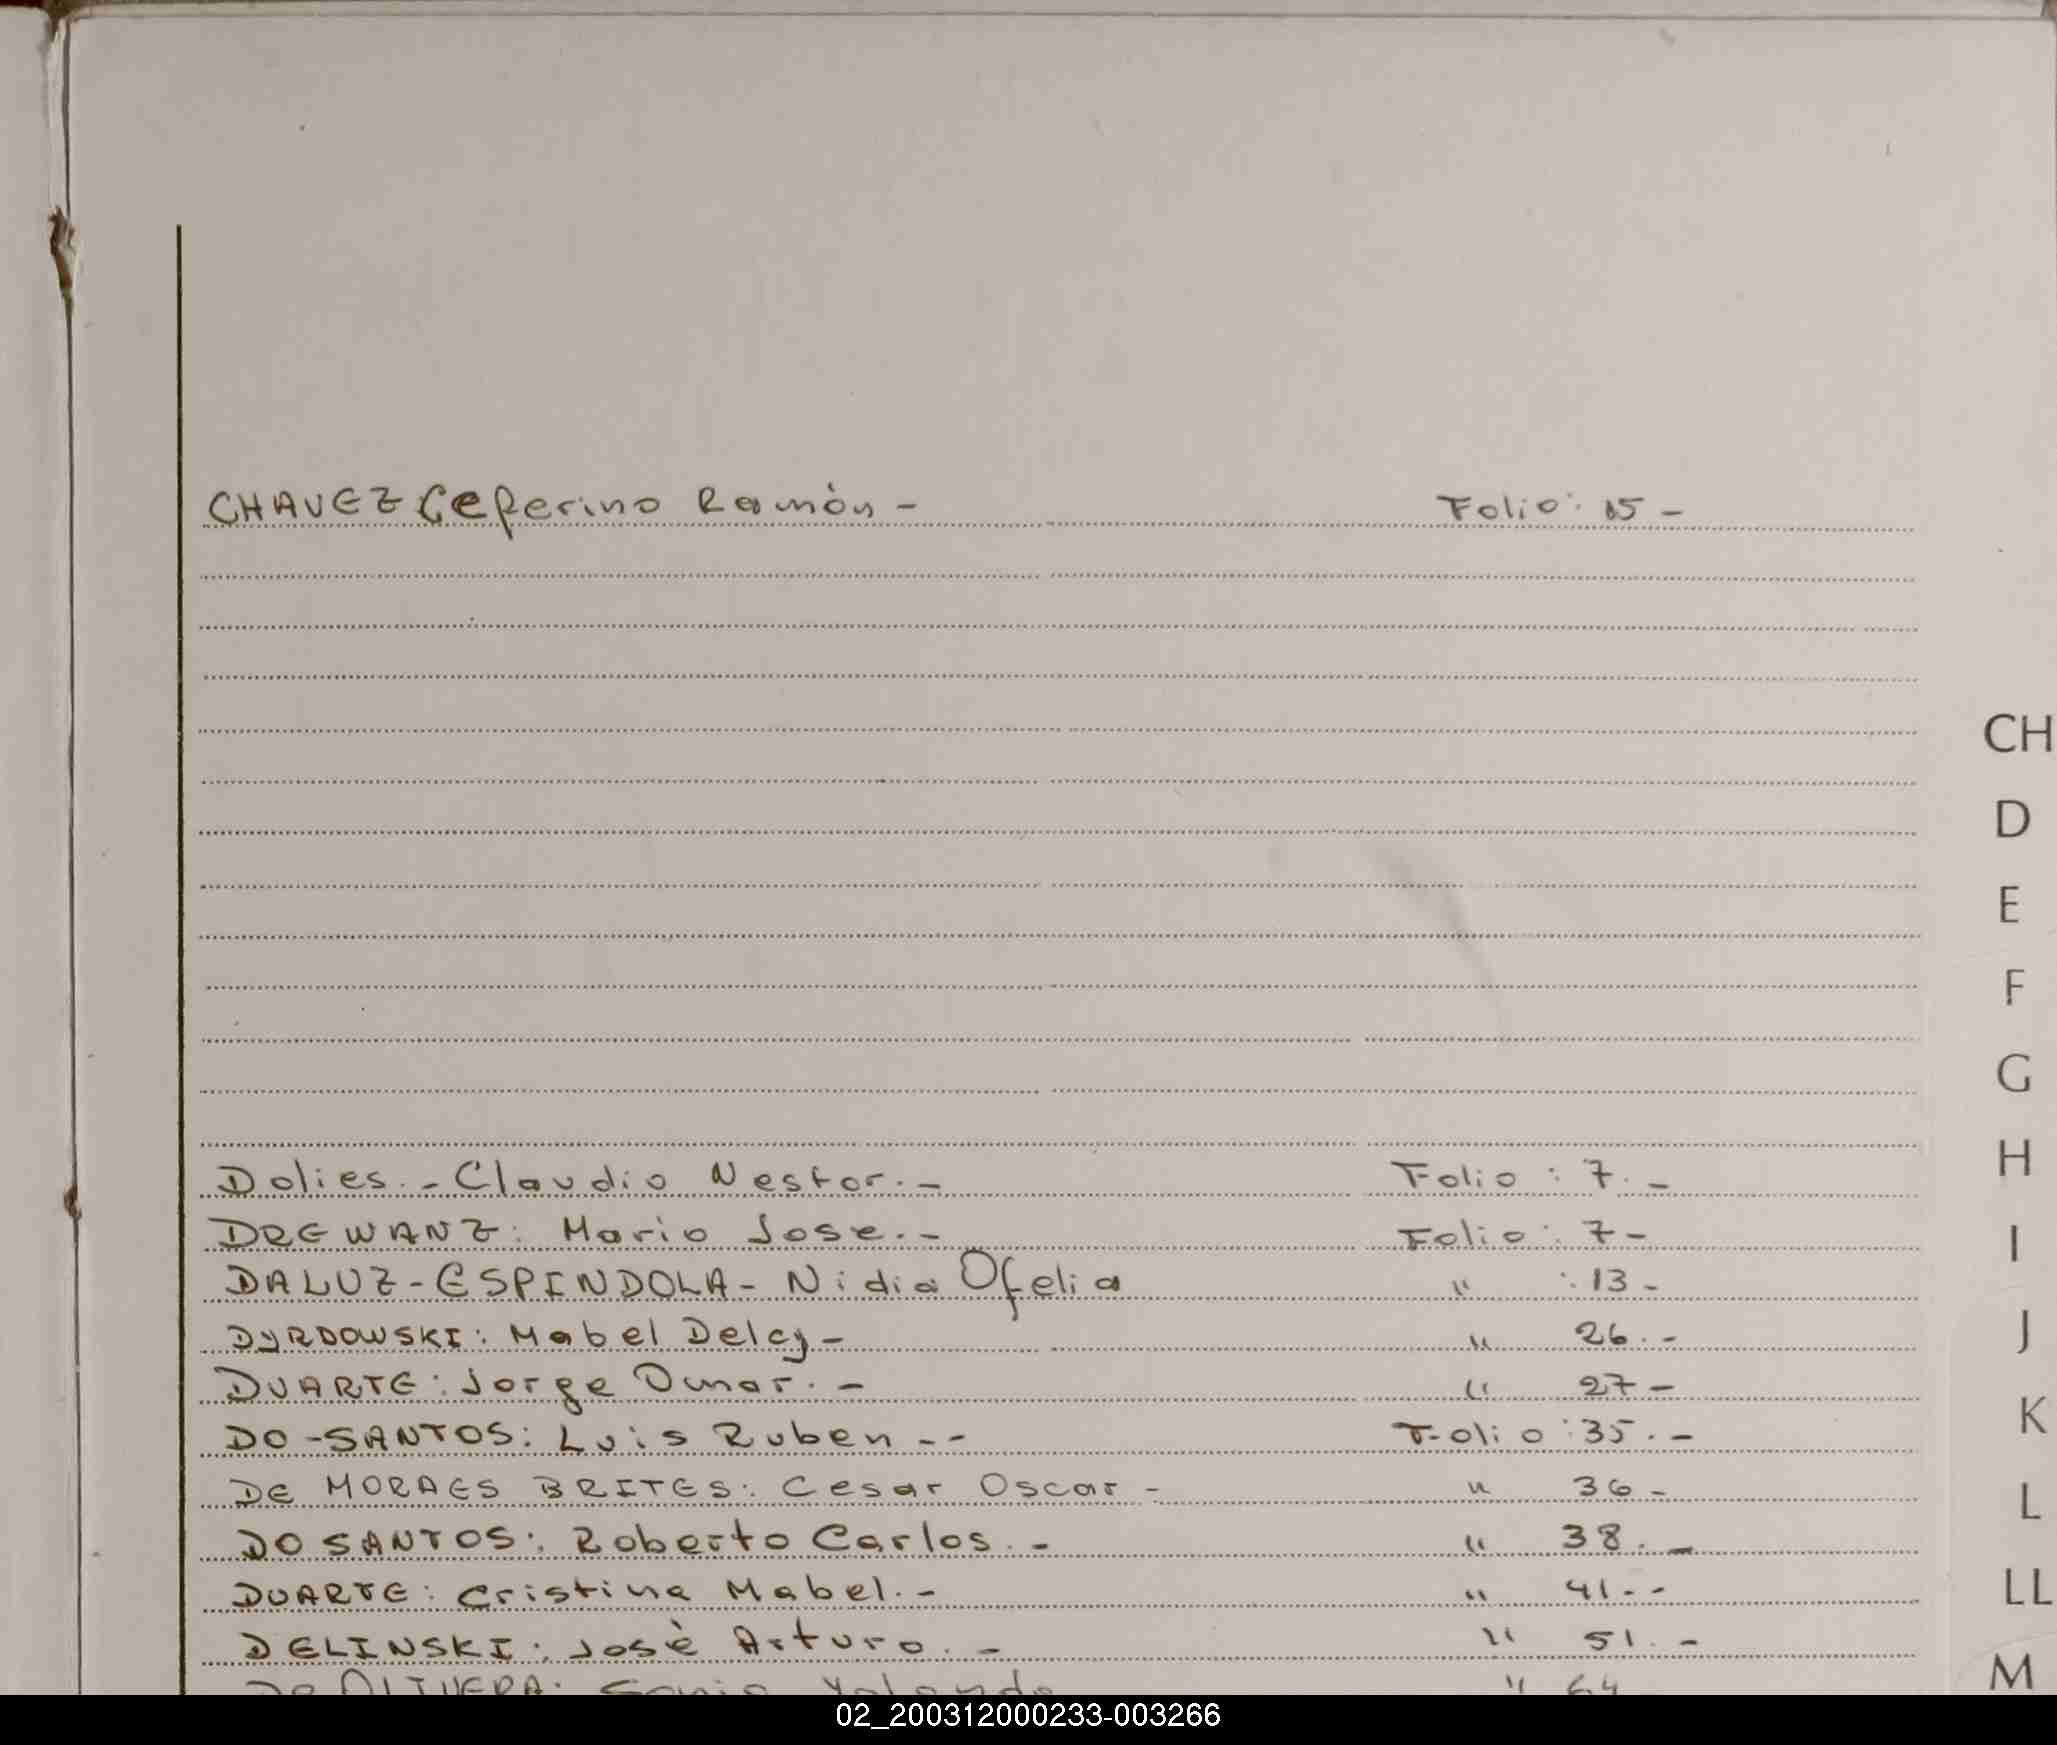 CHAVEZ Ceferino Ramòn - Folio: 15 -
CH
D
E
F
G
H
Dolies. - Claudio Nestor. - Folio : 7. -
DREWANZ: Mario Jose. - Folio : 7 -
I
DALUZ - ESPINDOLA - Nidia Ofelia " : 13 -
DYRDOWSKI: Mabel Delcy - " 26. -
J
DUARTE: Jorge Omar. - " 27 -
DO - SANTOS: Luis Ruben - - Folio : 35. -
K
DE MORAES BRITES: Cesar Oscar - " 36 -
L
DO SANTOS: Roberto Carlos. - " 38. -
DUARTE: Cristina Mabel. - " 41 - -
LL
DELINSKI: Josè Arturo. - " 51. -
M
De OLIVERA: Sonia Yolanda " 64
02_200312000233-003266